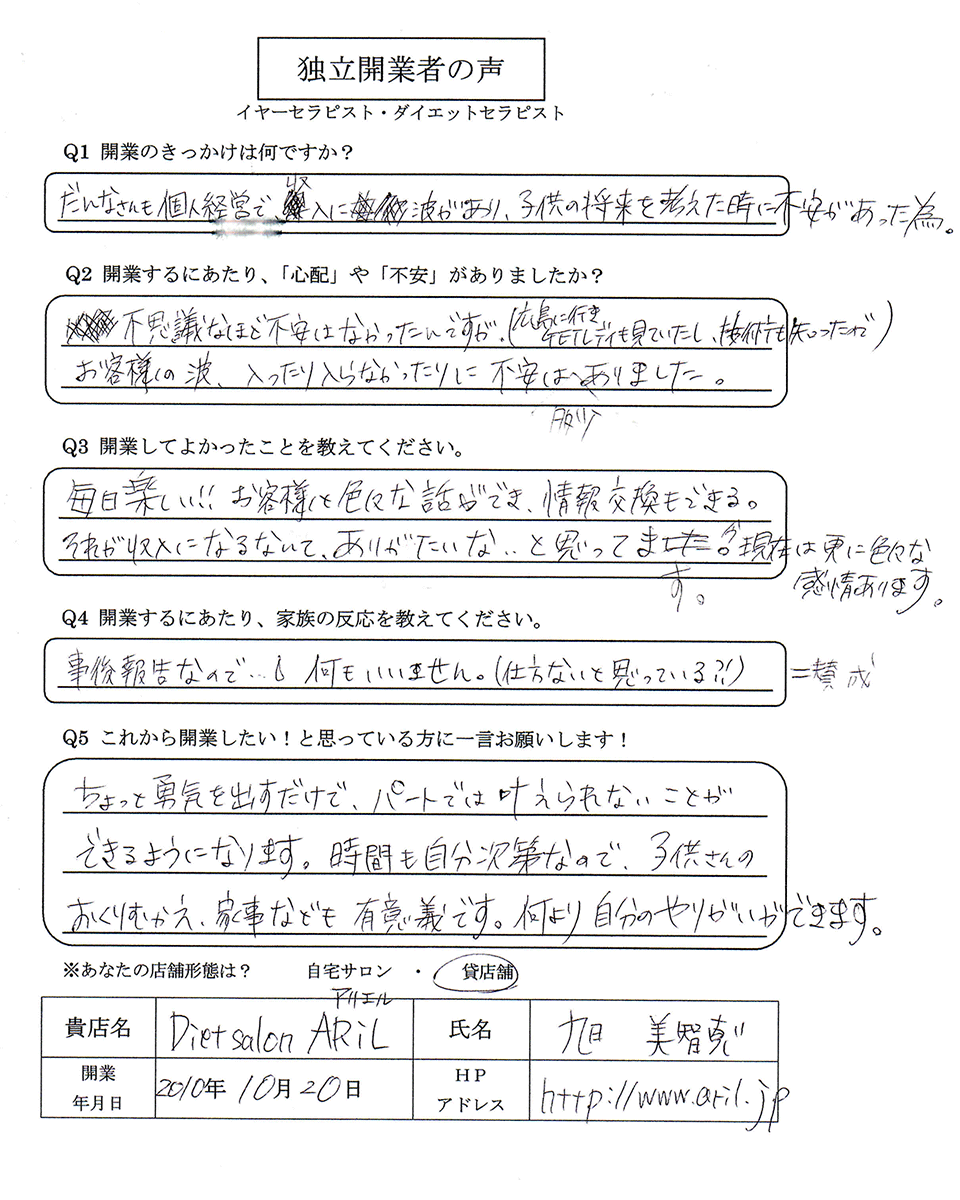 独立開業者の声
イヤーセラピスト・ダイエットセラピスト
Q1 開業のきっかけは何ですか？
だんなさんも個人経営で、収入に波があり、子供の将来を考えた時に不安があった為。
Q2 開業するにあたり、「心配」や「不安」がありましたか？
不思議なほど不安はなかったんですが、(広島に行き
も見ていたし、技術も知ったので)
お客様の波、入ったり入らなかったりに不安はありました。
Q3 開業してよかったことを教えてください。
毎日楽しい!! お客様と色々な話ができ、情報交換もできる。
それが収入になるなんて、ありがたいな‥と思ってます。現在は更に色々な
感情あります。
Q4 開業するにあたり、家族の反応を教えてください。
事後報告なので… 何もいいません。(仕方ないと思っている?!) =賛成
Q5 これから開業したい！と思っている方に一言お願いします！
ちょっと勇気を出すだけで、パートでは叶えられないことが
できるようになります。時間も自分次第なので、子供さんの
おくりむかえ、家事なども有意義です。何より自分のやりがいができます。
※あなたの店舗形態は？ 自宅サロン ・ 貸店舗
アリエル
貴店名 Diet salon ARiL 氏名 旭 美智恵
開業年月日 2010年 10月 20日 HPアドレス http://www.aril.jp